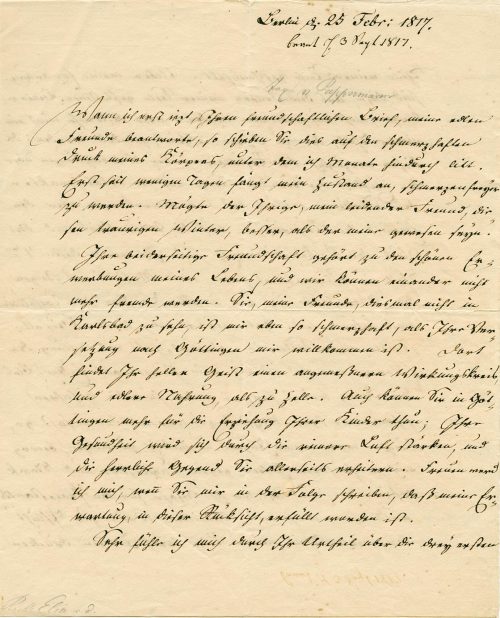 Berlin d. 25 Febr: 1817.
beant. d. 3 Sept 1817.
Wenn ich erst itzt Ihren freundschaftlichen Brief, meine edlen
Freunde beantworte, so schieben Sie dies auf den schmerzhaften
Druck meines Körpers, unter dem ich Monate hindurch litt.
Erst seit wenigen Tagen fängt mein Zustand an, schmerzenfreyer
zu werden. Mögte der Ihrige, mein leidender Freund, die
sen traurigen Winter, besser, als der meine gewesen seyn!
Ihre beiderseitige Freundschaft gehört zu den schönen Er-
werbungen meines Lebens, und wir können einander nicht
mehr fremde werden. Sie, meine Freunde, diesmal nicht in
Karlsbad zu sehn, ist mir eben so schmerzhaft, als Ihre Ver-
setzung nach Göttingen mir willkommen ist. Dort
findet Ihr heller Geist einen angemeßnern Wirkungskreis
und edlere Nahrung als zu Zelle. Auch können Sie in Göt-
tingen mehr für die Erziehung Ihrer Kinder thun; Ihre
Gesundheit wird sich durch die reinere Luft stärken, und
die herrliche Gegend Sie allerseits erheitern. Freuen werd
ich mich, wenn Sie mir in der Folge schreiben, daß meine Er-
wartung, in dieser Rücksicht, erfüllt worden ist.
Sehr fühle ich mich durch Ihr Urtheil über die drey ersten